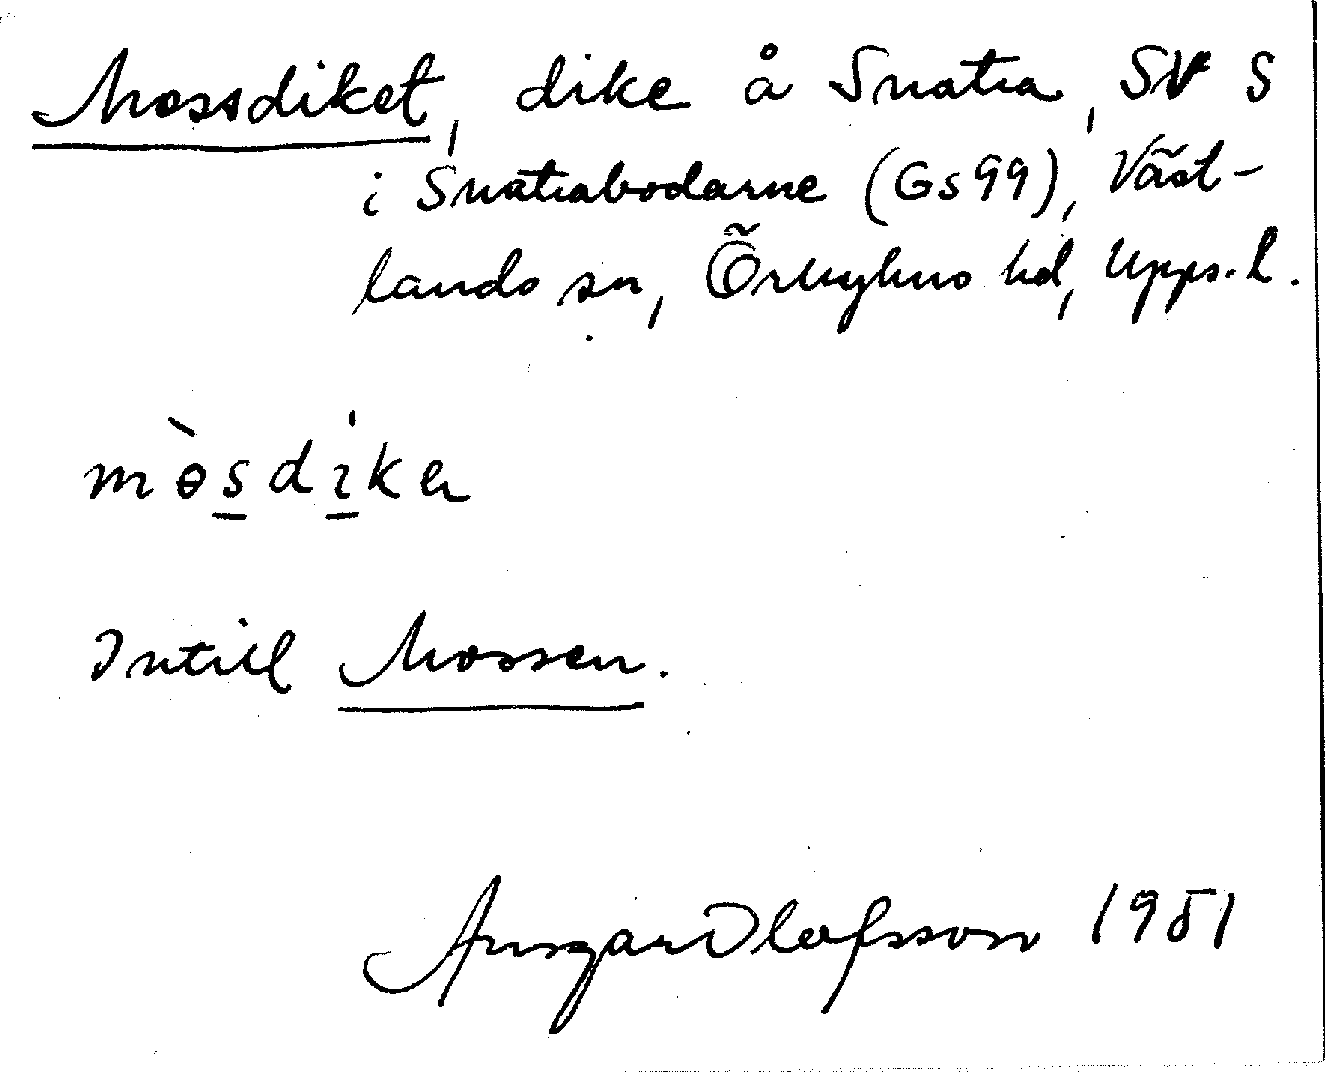 Mossdiket, dike å Snatra, SV S
i Snatrabodarne (Gs 99), Väst-
lands sn, Örbyhus hd, Upps. l.
mɵ̀sdika
Intill Mossen.
Ansgar Olafsson 1951